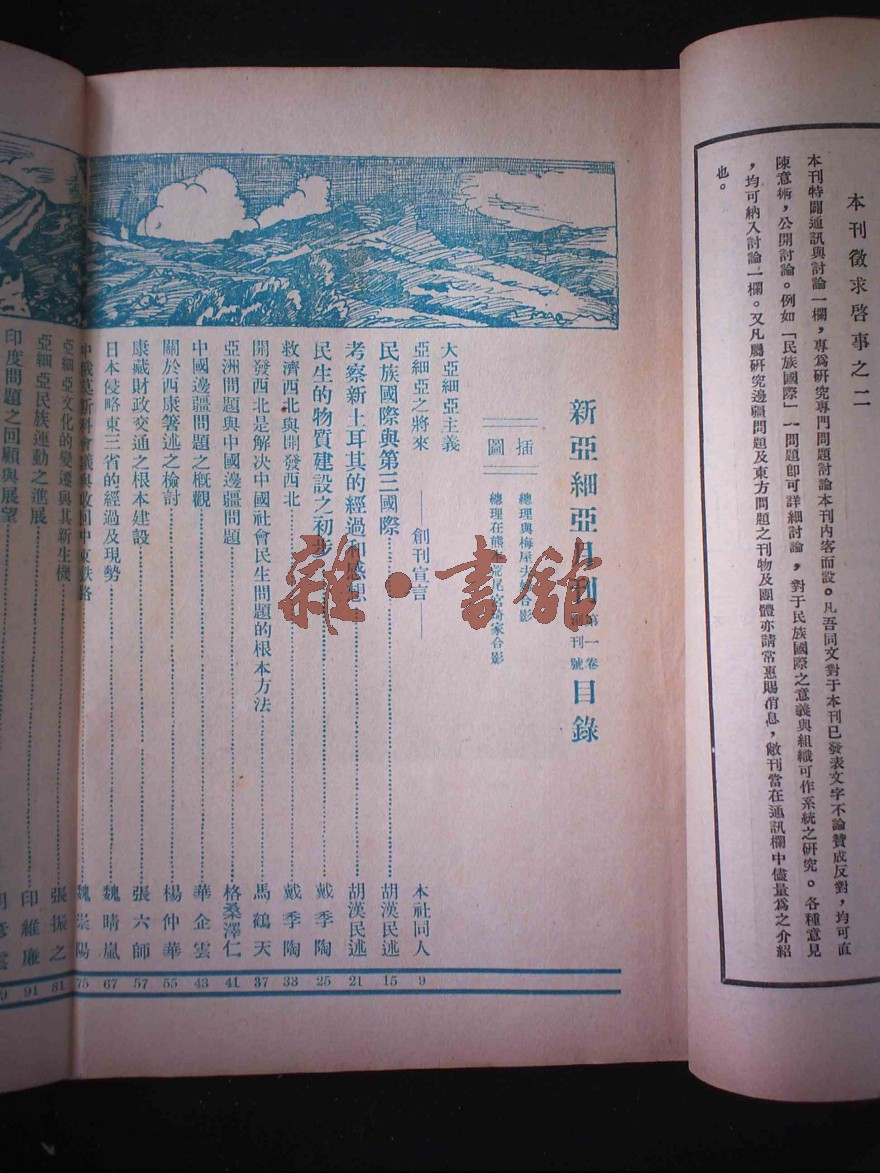 本刊徵求啓事之二
本刊特闢通訊與討論一欄，專爲研究專門問題討論本刊內容而設。凡吾同文對于本刊已發表文字不論贊成反對，均可直
陳意術，公開討論。例如「民族國際」一問題卽可詳細討論，對于民族國際之意義與組織可作系統之研究。各種意見
，均可納入討論一欄。又凡屬研究邊疆問題及東方問題之刊物及團體亦請常惠賜消息，敝刊當在通訊欄中儘量爲之介紹
也。
新亞細亞月刊 第一卷 創刊號 目錄
插圖
總理與梅屋 合影
總理在熊本荒尾宮崎家合影
大亞細亞主義
亞細亞之將來 ——創刊宣言—— 本社同人 9
民族國際與第三國際 胡漢民述 15
考察新土耳其的經過和感想 胡漢民述 21
民生的物質建設之初步 戴季陶 25
救濟西北與開發西北 戴季陶 33
開發西北是解决中國社會民生問題的根本方法 馬鶴天 37
亞洲問題與中國邊疆問題 格桑澤仁 41
中國邊疆問題之概觀 華企雲 43
關於西康箸述之檢討 楊仲華 55
康藏財政交通之根本建設 張六師 57
日本侵略東三省的經過及現勢 魏晴嵐 67
中俄莫斯科會議與收回中東鉄路 魏崇陽 75
亞細亞文化的變遷與其新生機 張振之 81
亞細亞民族運動之進展 印維廉 91
印度問題之回顧與展望
雜·書館